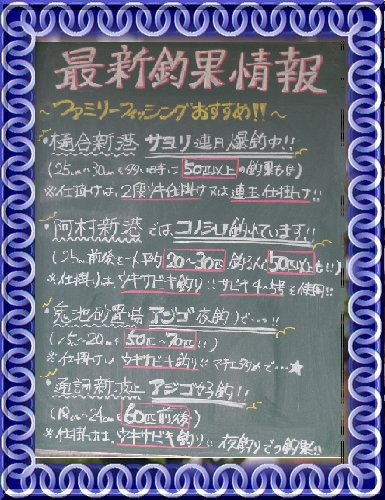 最新釣果情報
～ファミリーフィッシングおすすめ!!～
・樋合新港 サヨリ連日爆釣中!!
50匹以上の釣果も
※仕掛けは、2段ウキ仕掛け又は連玉仕掛け!!
・阿村新港では、コノシロ釣れています!!
前後を一人平均20～30匹 釣る人50匹以上も!!)
※仕掛けは ウキサビキ釣り!! サビキ4~5号を使用!!
アジゴ夜釣りで…!!
(15～20cmを50匹～70匹!!)
※仕掛けは ウキサビキ釣り!!
・通詞新波止 アジゴ釣!!
(18cm～24cmを60匹前後)
※仕掛けは、ウキサビキ釣り!! 夜釣りでの釣果!!